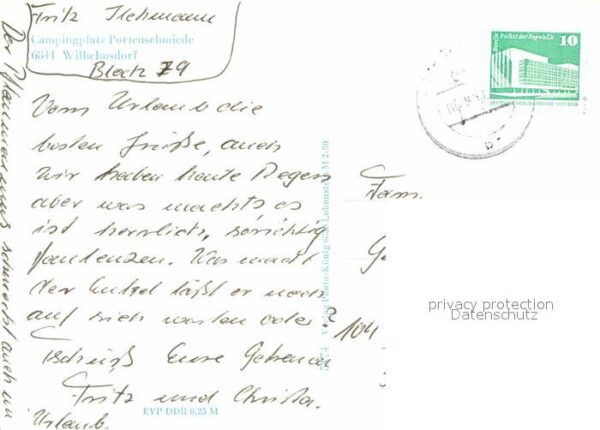 Fritz
Campingplatz Portenschmiede
6841 Wilhelmsdorf
Block 79
Vom Urlaub die
besten Grüße, auch
wir haben heute Regen
aber was machts es
ist herrlich,
faulenzen. Was macht
der Enkel läßt er noch
auf sich warten oder?
Tschüß Eure
Fritz und Christa.
Der Pflaumenmus schmeckt auch im
Urlaub.
EVP DDR 0,25 M
Verlag Photo-König Lobenstein M 2/80
Fam.
G
104
Berlin Palast der Republik
10
privacy protection
Datenschutz